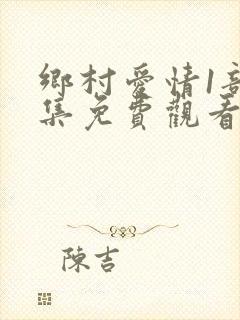 鄉村愛情1部
集免費觀看
陳吉